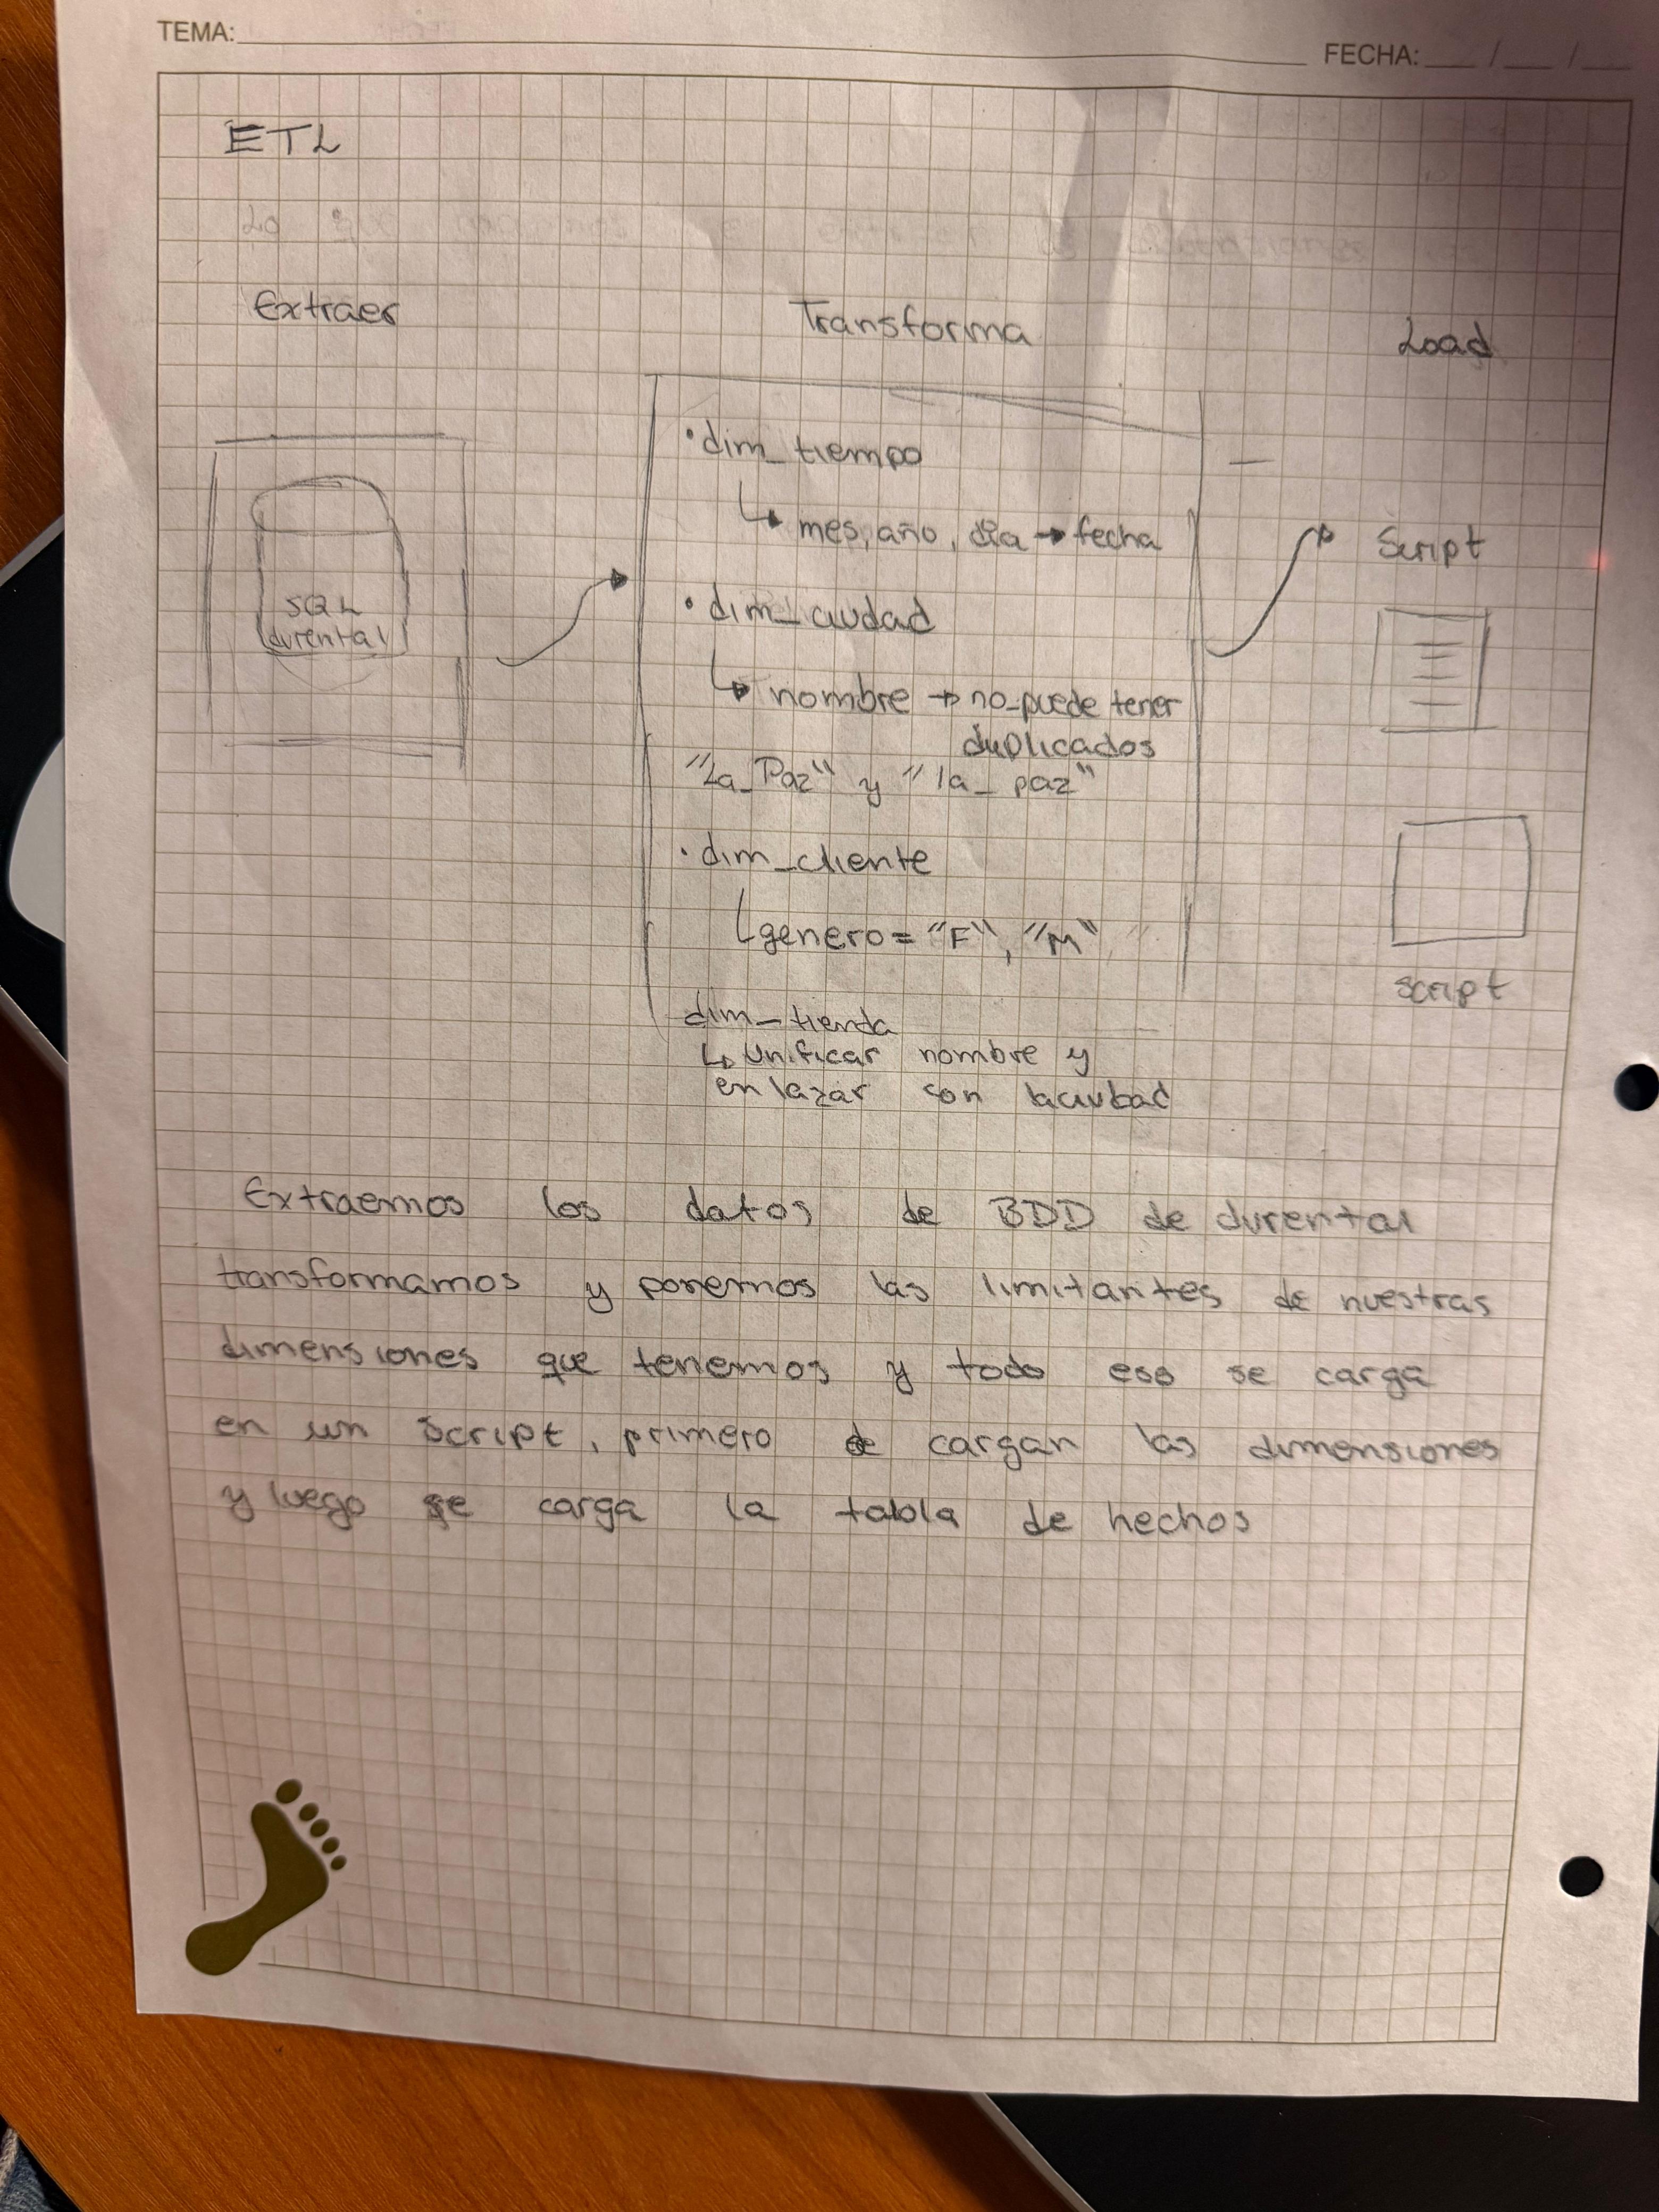 TEMA:
FECHA: / /
ETL
Extraer
Transforma
Load
SQL
dvrental
• dim_tiempo
↳ mes, año, dia → fecha
• dim_ciudad
↳ nombre → no_puede tener
duplicados
"La_Paz" y "la_paz"
• dim_cliente
genero = "F", "M"
dim_tienda
↳ Unificar nombre y
enlazar con laciudad
Script
Script
Extraemos los datos de BDD de dvrental
transformamos y ponemos las limitantes de nuestras
dimensiones que tenemos y todo eso se carga
en un script, primero se cargan las dimensiones
y luego se carga la tabla de hechos